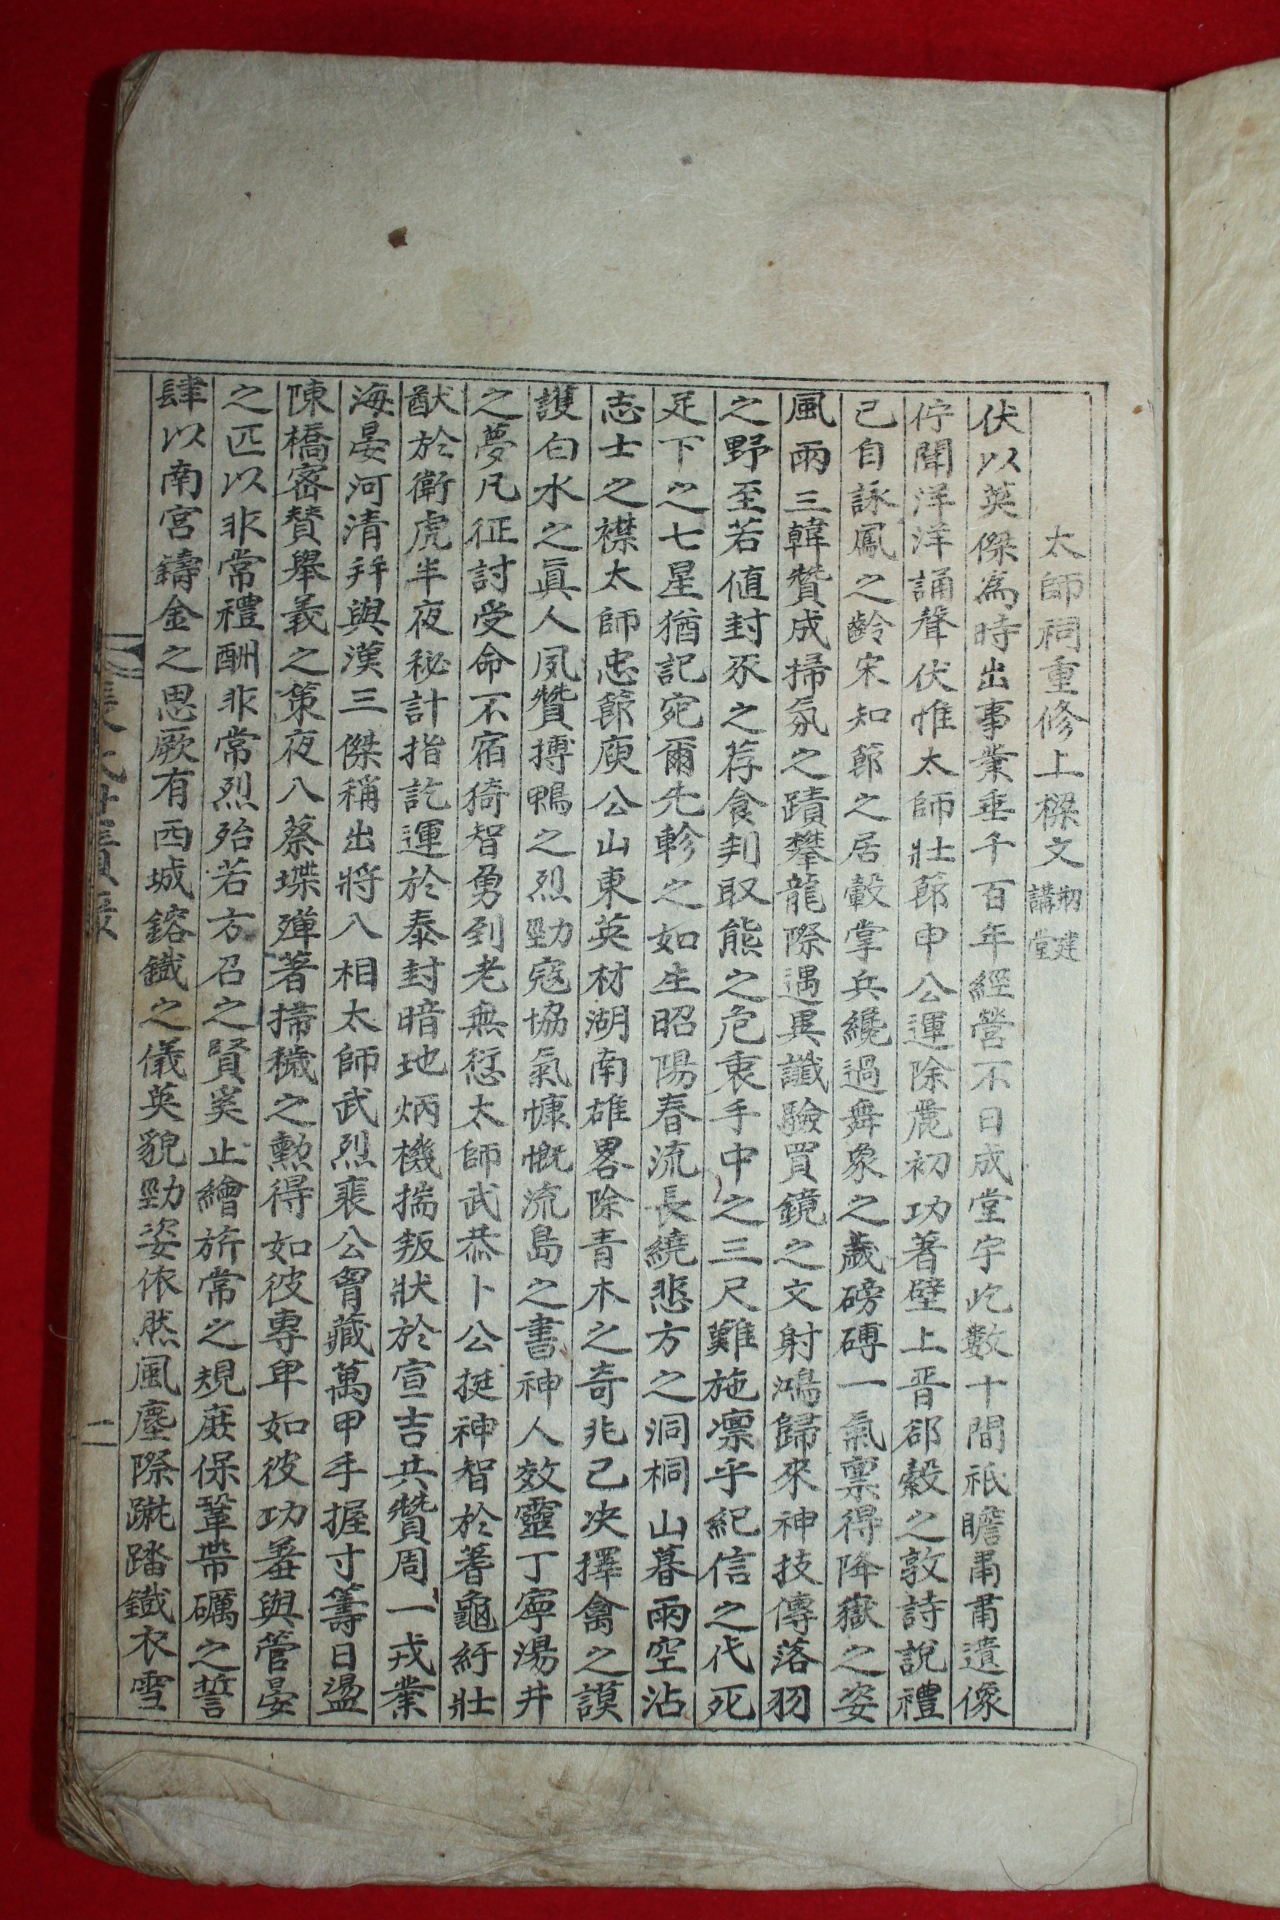 太師祠重修上樑文 刱建講堂
伏以英傑爲時出事業垂千百年經營不日成堂宇屹數十間祇瞻肅肅遺像
佇聞洋洋誦聲伏惟太師壯節申公運除麗初功著壁上晋郤縠之敦詩說禮
己自詠鳳之齡宋知節之居轂掌兵纔過舞象之歲磅磚一氣禀得降嶽之姿
風雨三韓贊成掃氛之蹟攀龍際遇異讖驗買鏡之文射鴻歸來神技傳落羽
之野至若値封豕之荐食判取熊之危衷手中之三尺難施凛乎紀信之代死
足下之七星猶記宛爾先軫之如生昭陽春流長繞悲方之洞桐山暮雨空沾
志士之襟太師忠節庾公山東英材湖南雄畧除青木之奇兆己决擇禽之謨
護白水之眞人夙贊搏鴨之烈勁寇協氣慷慨流島之書神人效靈丁寧湯井
之夢凡征討受命不宿猗智勇到老無愆太師武恭卜公挺神智於蓍龜紆壯
猷於衛虎半夜秘計指訖運於泰封暗地炳機揣叛狀於宣吉共贊周一戎業
海晏河清幷與漢三傑稱出將入相太師武烈裵公胷藏萬甲手握寸籌日盪
陳橋密贊舉義之策夜入蔡堞殫著掃穢之勳得如彼專卑如彼功羞與管晏
之匹以非常禮酬非常烈殆若方召之賢奚止繪旂常之規庶保鞏帶礪之誓
肆以南宮鑄金之恩厥有西城鎔鐵之儀英貌勁姿依然風塵際蹴踏鐵衣雪
二